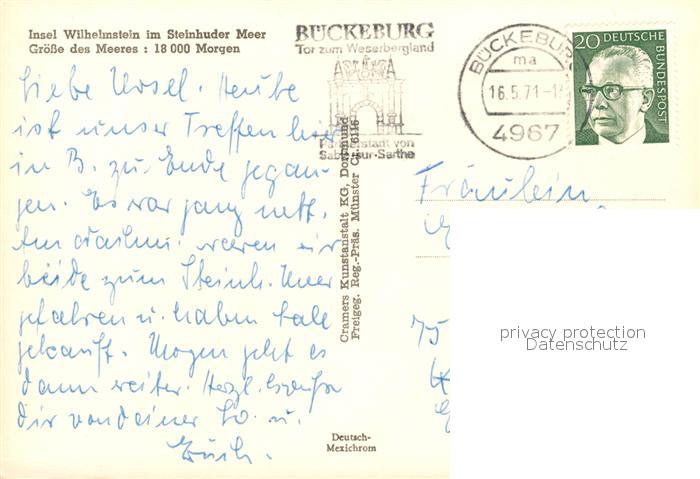 Insel Wilhelmstein im Steinhuder Meer
Größe des Meeres : 18 000 Morgen
BÜCKEBURG
Tor zum Weserbergland
Sablé-sur-Sarthe
BÜCKEBURG
ma
16.5.71
4967
20 DEUTSCHE
BUNDESPOST
Liebe Ursel. Heute
ist unser Treffen hier
in B. zu Ende gegan-
gen. Es war ganz nett.
waren wir
beide zum Steinh. Meer
gefahren u. haben Aale
gekauft. Morgen geht es
dann weiter. Herzl. Grüße
Dir von deiner Lo. u.
Erich.
Cramers Kunstanstalt KG, Dortmund
Freigeg. Reg.-Präs. Münster
Fräulein
75
privacy protection
Datenschutz
Deutsch-
Mexichrom